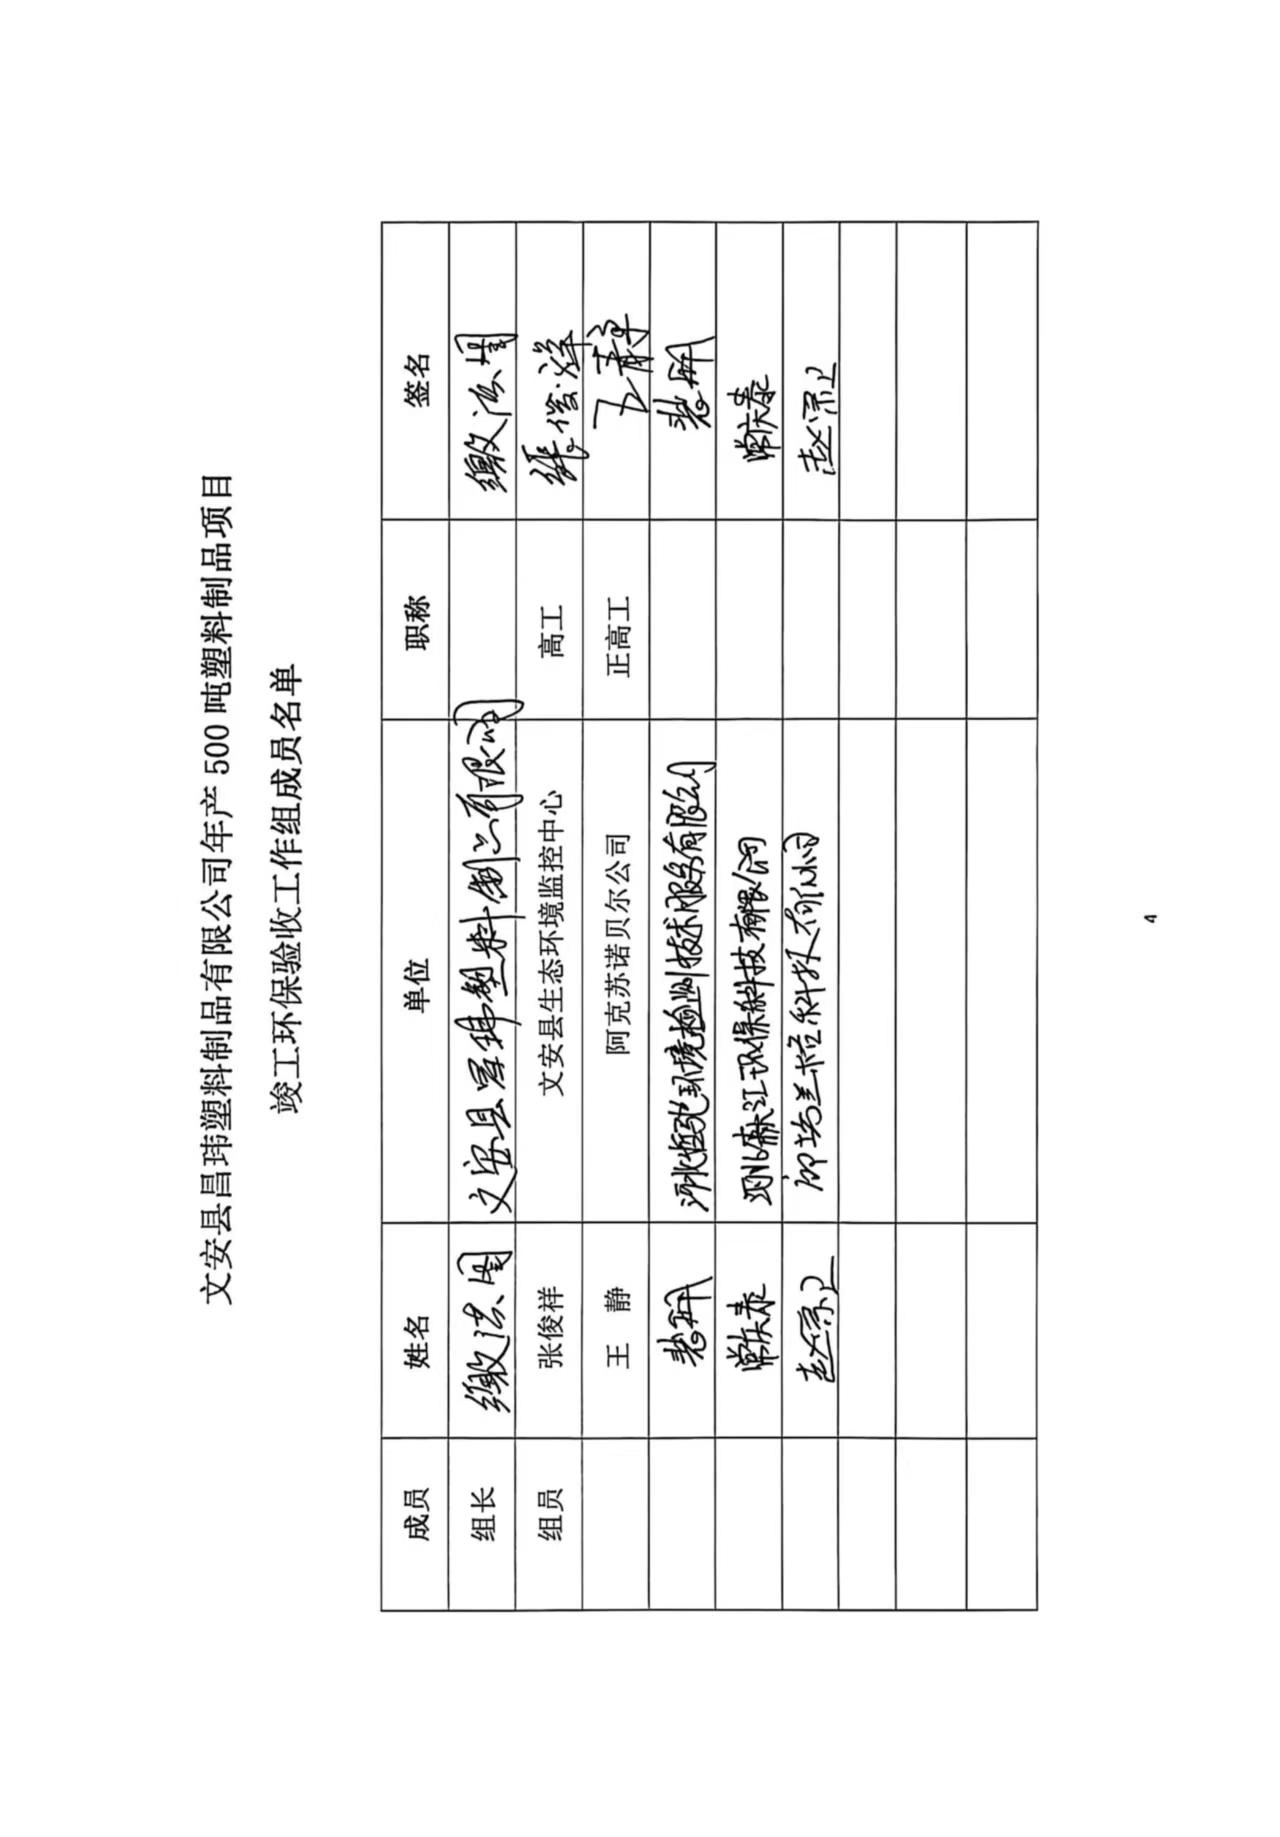 文安县昌玮塑料制品有限公司年产 500 吨塑料制品项目
竣工环保验收工作组成员名单
成员 姓名 单位 职称 签名
组长 缴法图 文安县昌玮塑料制品有限公司 缴法图
组员 张俊祥 文安县生态环境监控中心 高工 张俊祥
王 静 阿克苏诺贝尔公司 正高工 王静
环境检测技术服务有限公司
江环保科技有限公司
赵 科技有限公司 赵
4